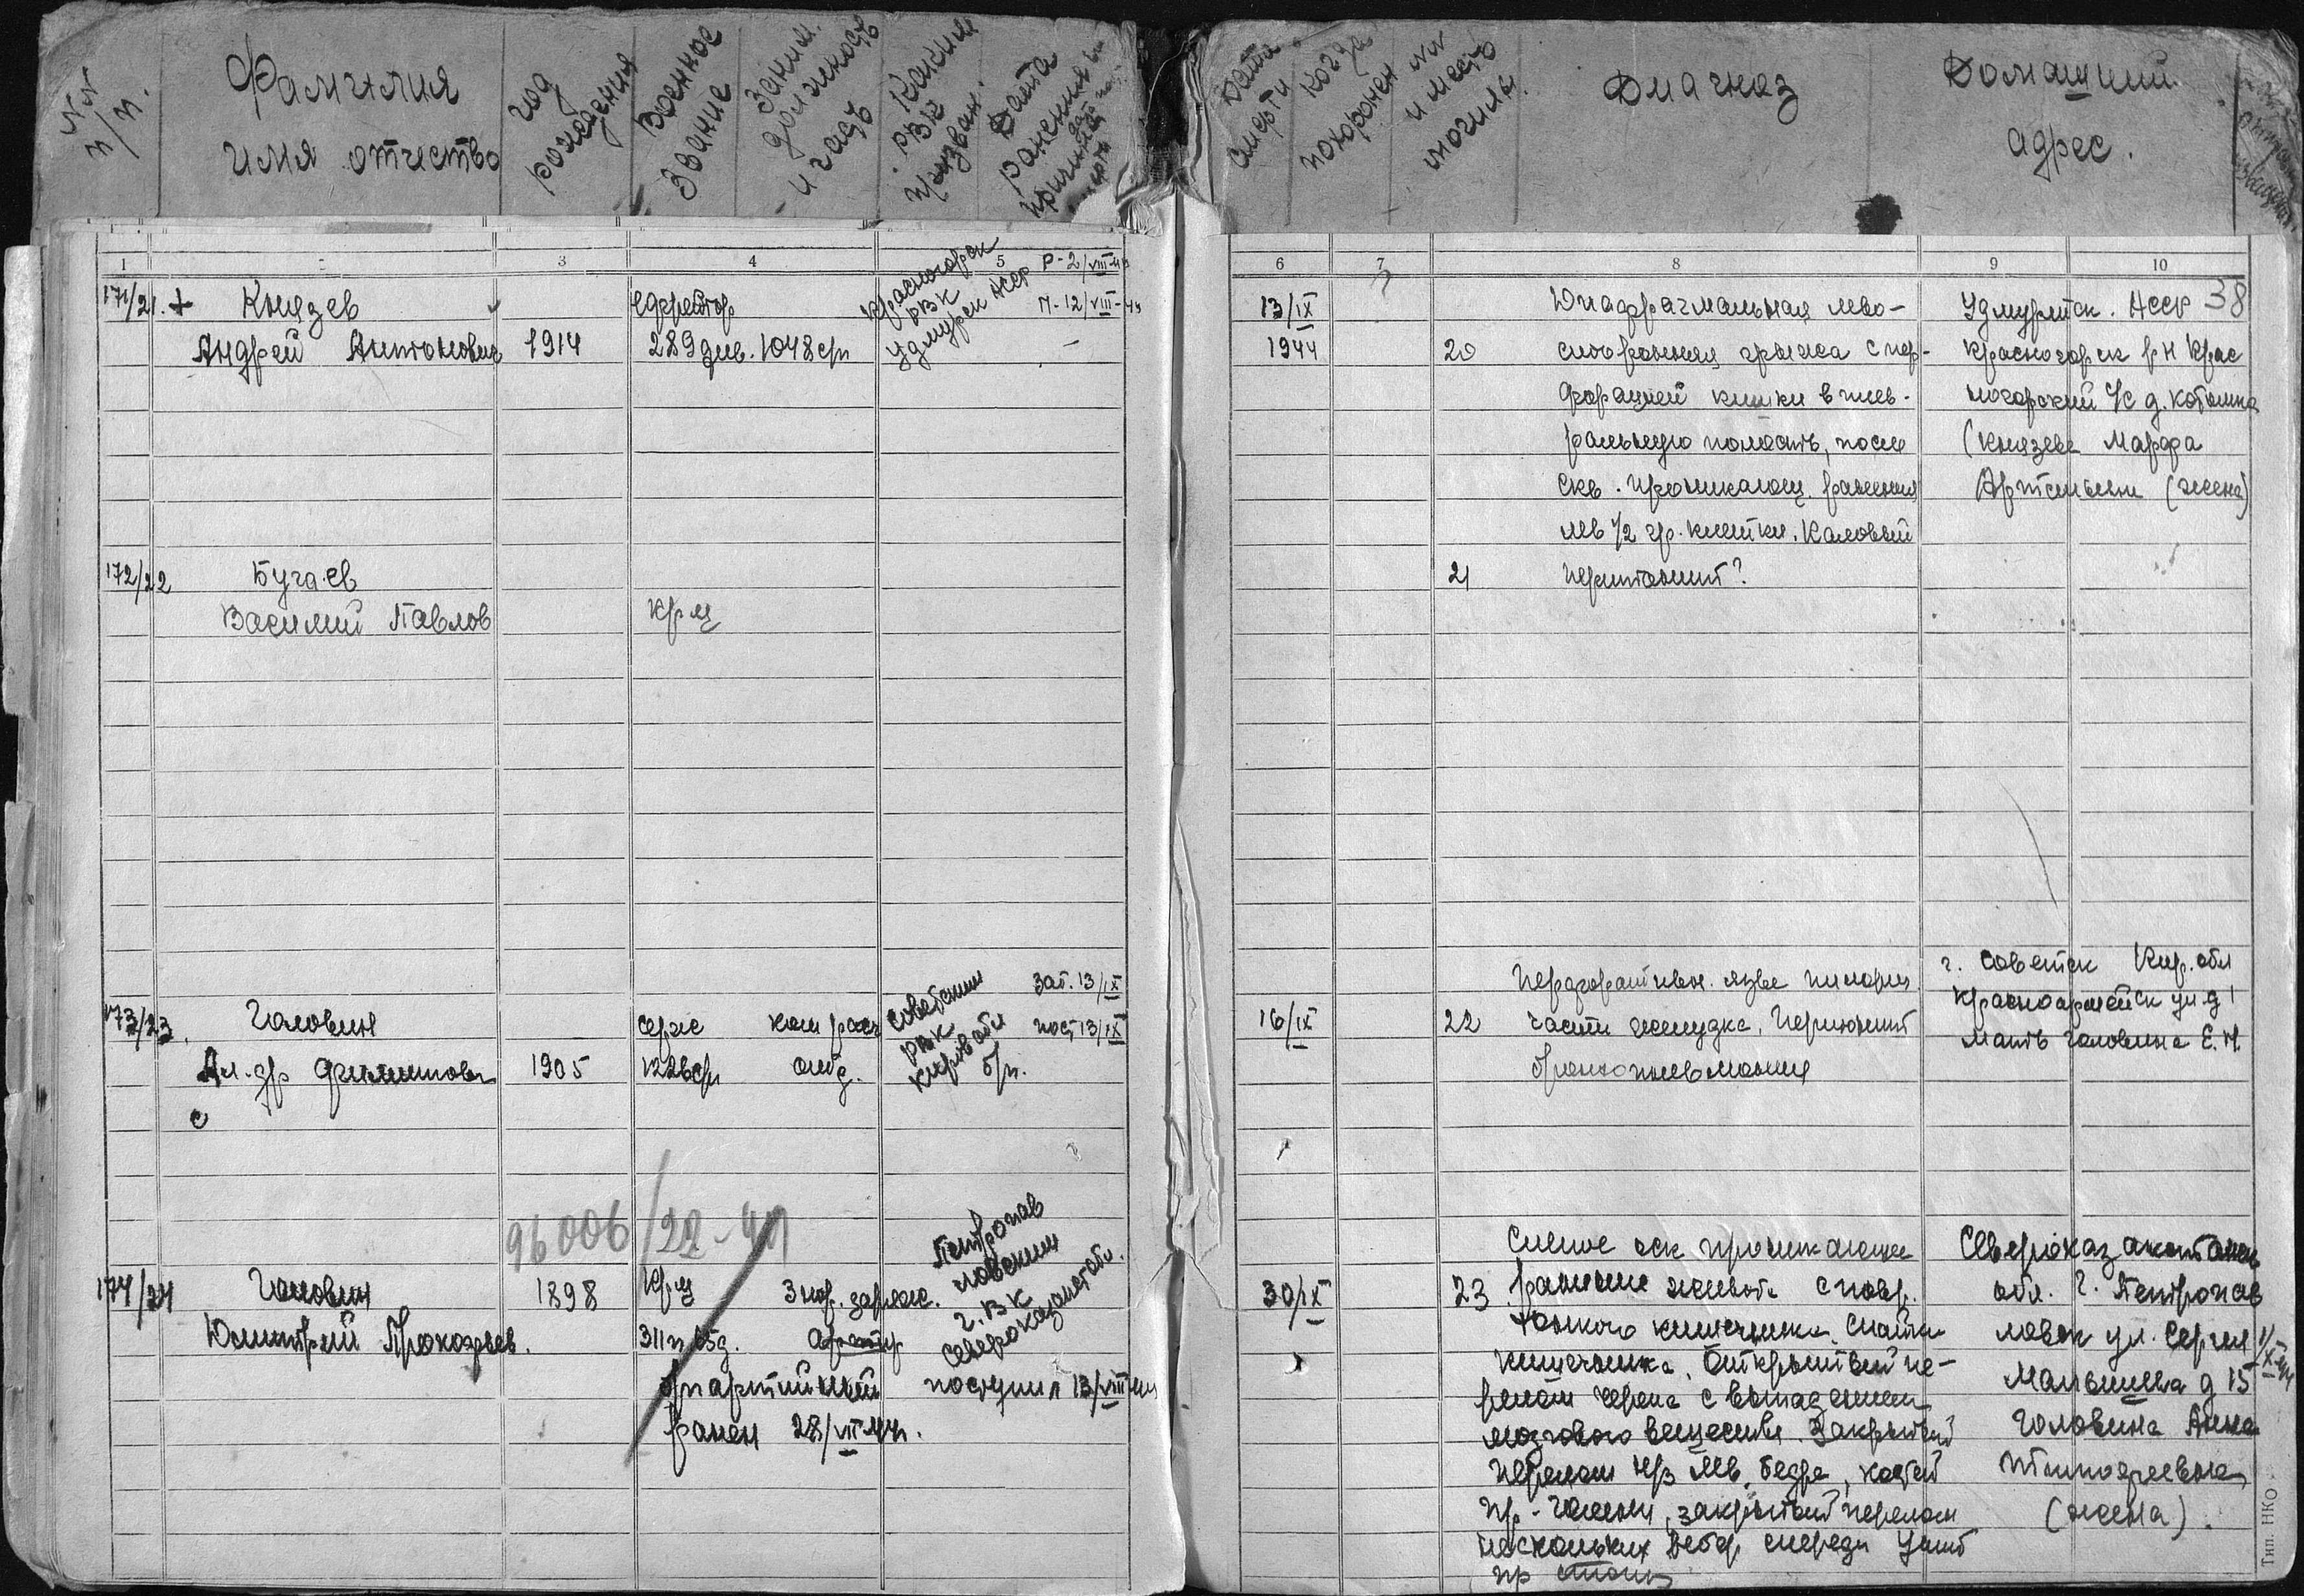 NN п/п.
Фамилия
имя отчество
год рождения
Военное звание
Заним. должность и часть
Каким РВК призван.
Дата ранения и
Дата смерти
Когда похоронен
NN и место могилы.
Диагноз
Домашний
адрес.
1 2 3 4 5 6 7 8 9 10
38
171/21. + Князев
Андрей Антонович 1914
ефрейтор
289 див. 1048 сп
Красногорск
РВК
Удмурск АССР
Р-2/VIII-44
П-12/VIII-44
13/IX
1944
20
Диафрагмальная лево-
сторонняя грыжа с пер-
форацией кишки в плев-
ральную полость, после
скв. проникающ. ранения
лев 1/2 гр. клетки. Каловый
перитонит?
Удмуртск. АССР
Красногорск р-н Крас
ногорский с/с д.
(Князева Марфа
(жена)
172/22 Бугаев
Василий Павлов
кр-ц
21
173/23. Головин
Ал-др Филиппов 1905
с
серж ком расч
1226 сп
Советским
РВК
Кировобл
Заб. 13/IX
пост 13/IX
б/п.
16/IX
22
Перфоративн. язва пилорич
части желудка, Перитонит
бронхопневмония
г. Советск Кир. обл
Красноармейск ул д 1
Мать Головина Е. И.
96006/22-44
174/24 Головин
Дмитрий Прокофьев.
1898
кр-ц
311 п 65 д.
б/партийный
ранен 28/VII 44 г.
Петропав
ловским
г. ВК
Северо казахстобл.
поступил 13/VIII 44
30/IX
23
Слепое оск проникающее
ранение живота с повр.
тонкого кишечника, Спайки
кишечника. Открытый пе-
релом черепа с выпадением
мозгового вещества. Закрытый
перелом н/з лев. бедра, костей
пр. голени, закрытый перелом
нескольких ребер спереди Ушиб
пр стопы
Североказахстанск
обл. г. Петропав
ловск ул. Сергея
Малышева д 15
Головина Анна
Тимофеевна
(жена).
Тип. НКО